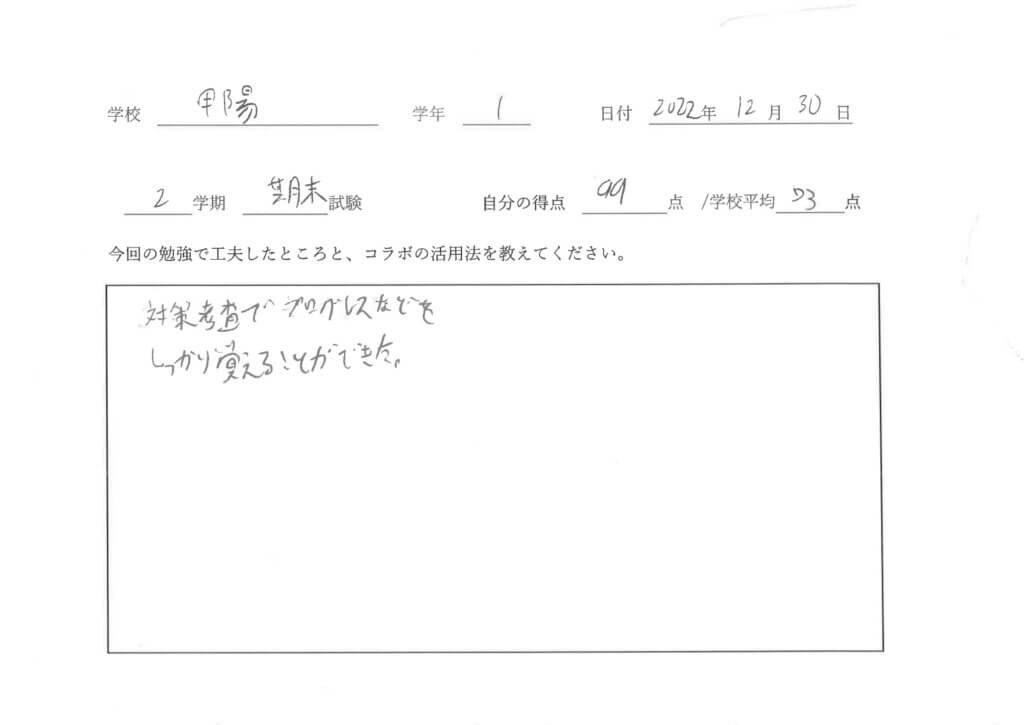 学校 甲陽 学年 1 日付 2022年 12月 30日
2学期 期末試験 自分の得点 99点 /学校平均 73点
今回の勉強で工夫したところと、コラボの活用法を教えてください。
対策考査でプログレスなどを
しっかり覚えることができた。